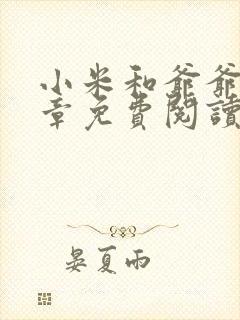 小米和爺爺
章免費閱讀
晏夏雨